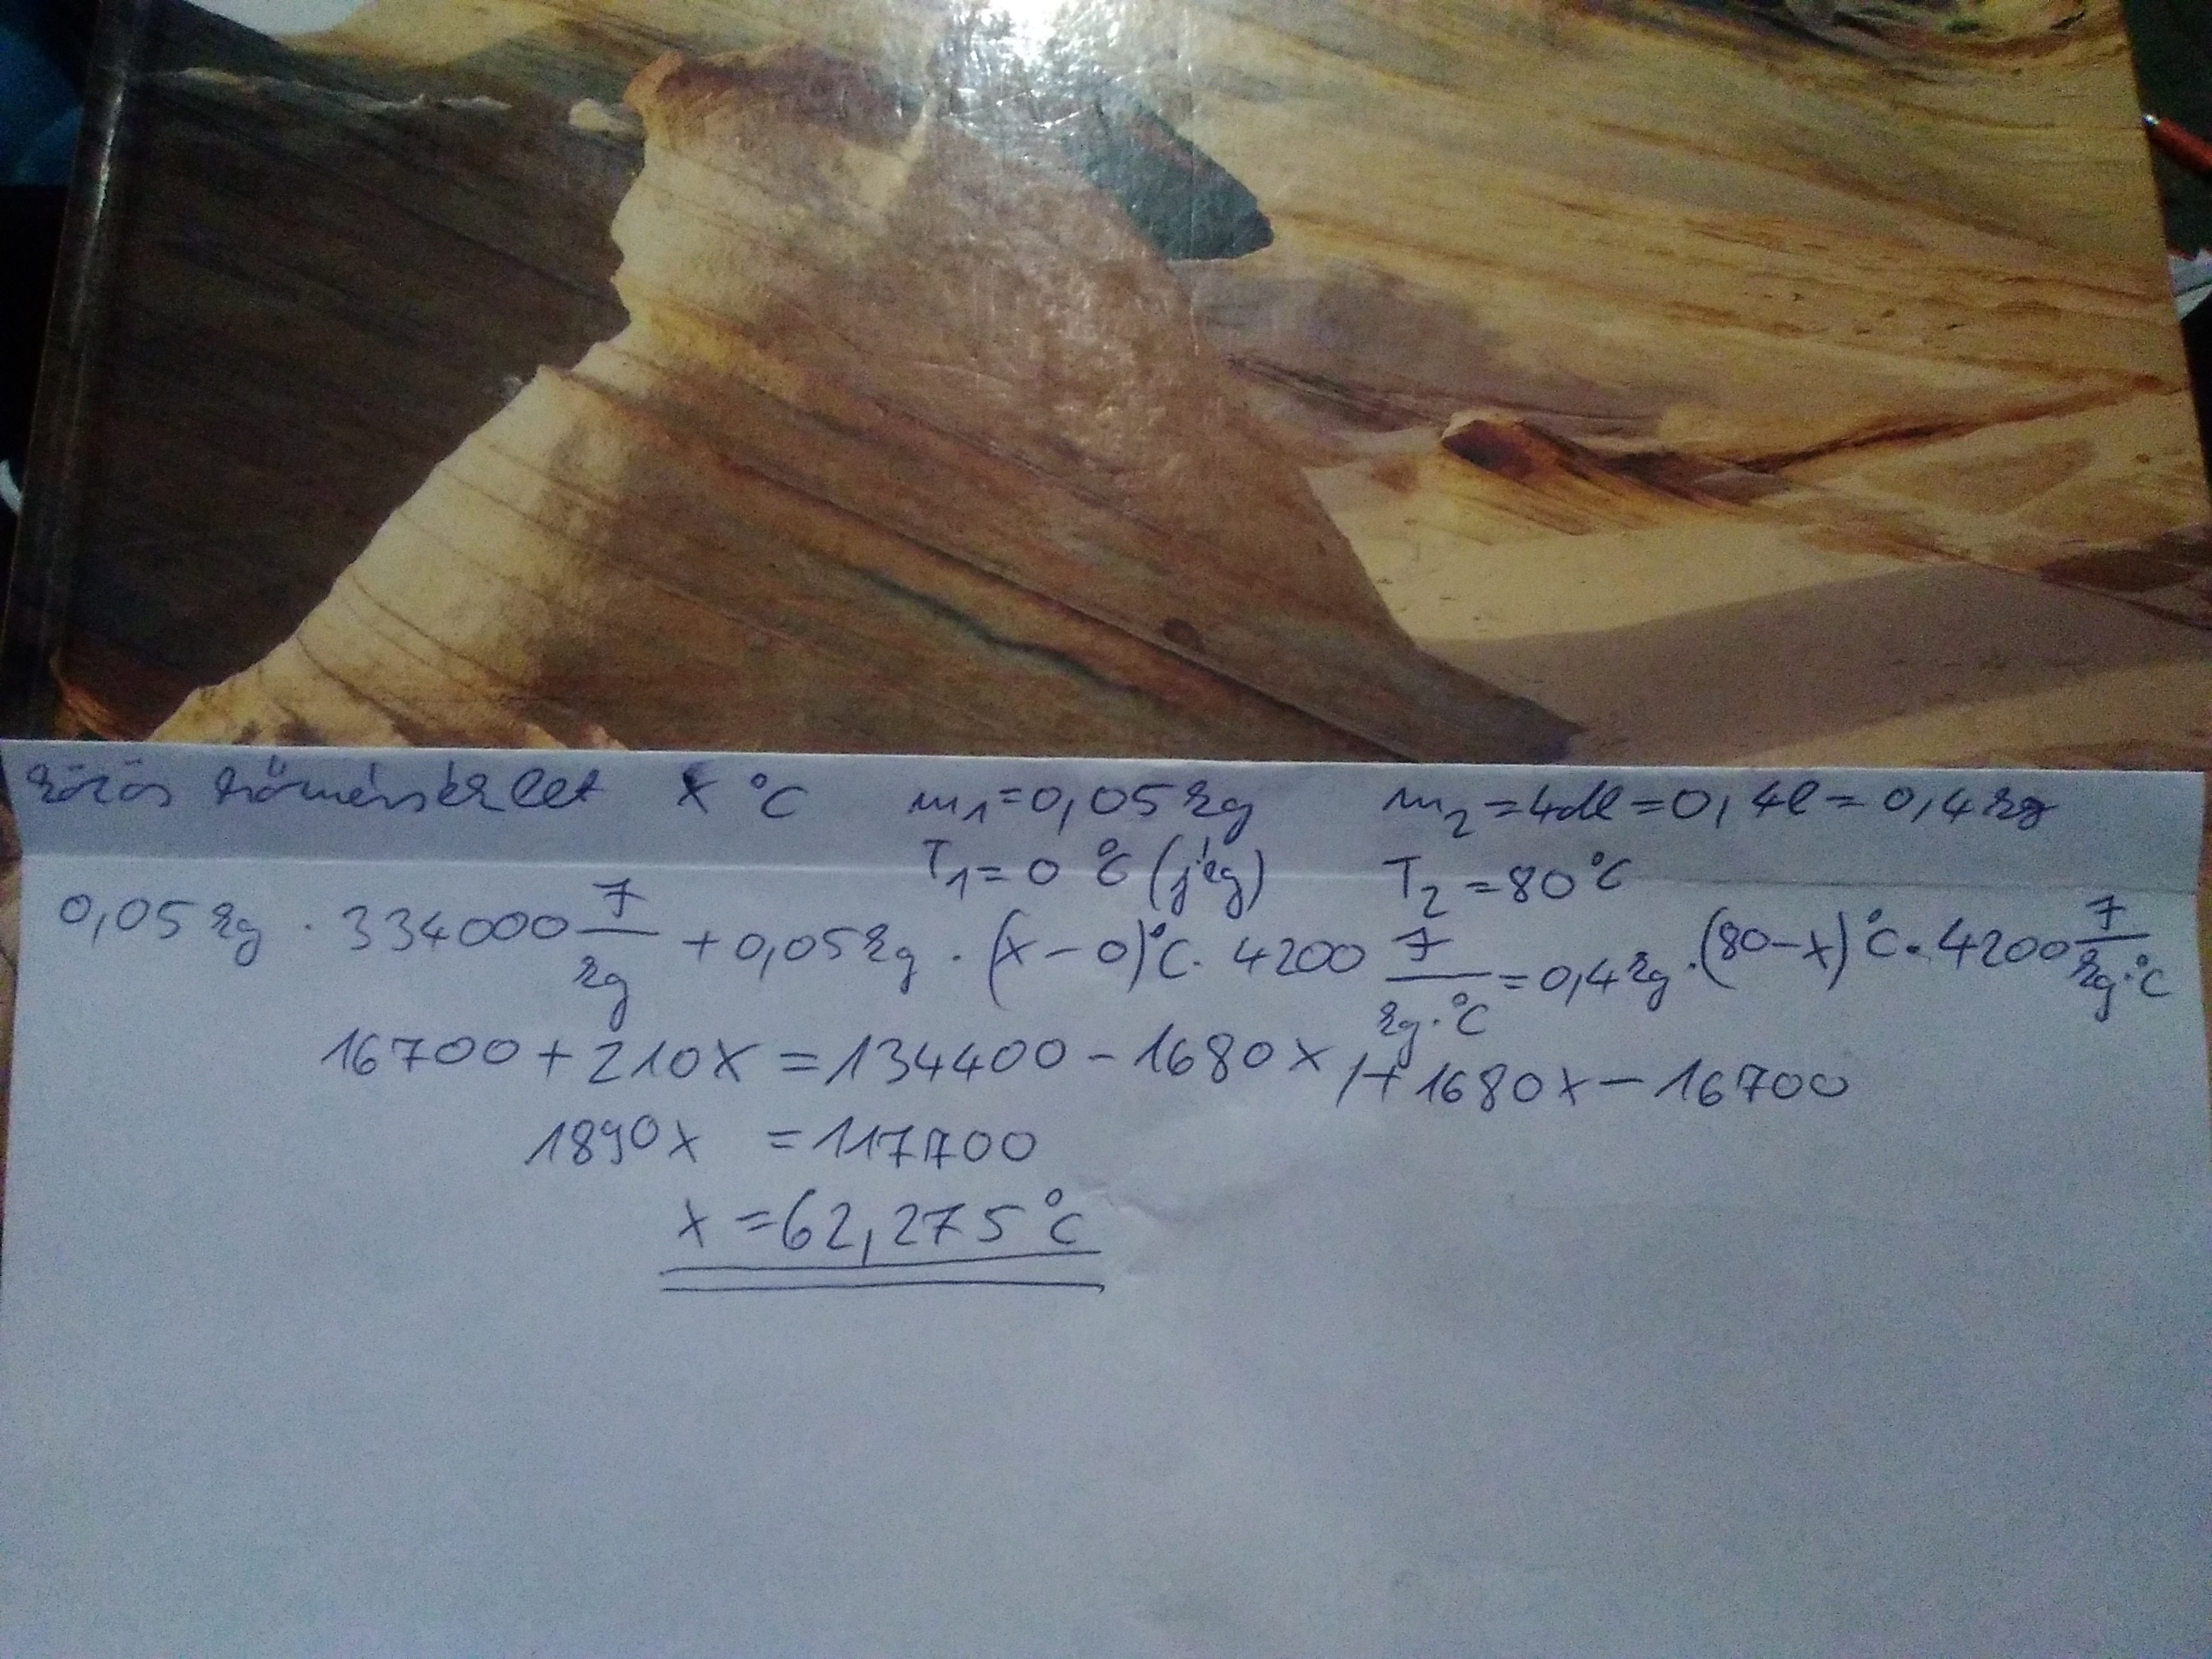 közös hőmérséklet x °C m₁=0,05 kg m₂=4dl=0,4l=0,4 kg
T₁=0 °C (jég) T₂=80°C
0,05 kg · 334000 J/kg + 0,05 kg · (x-0)°C · 4200 J/kg·°C = 0,4 kg · (80-x)°C · 4200 J/kg·°C
16700+210x=134400-1680x /+1680x-16700
1890x =117700
x=62,275°C